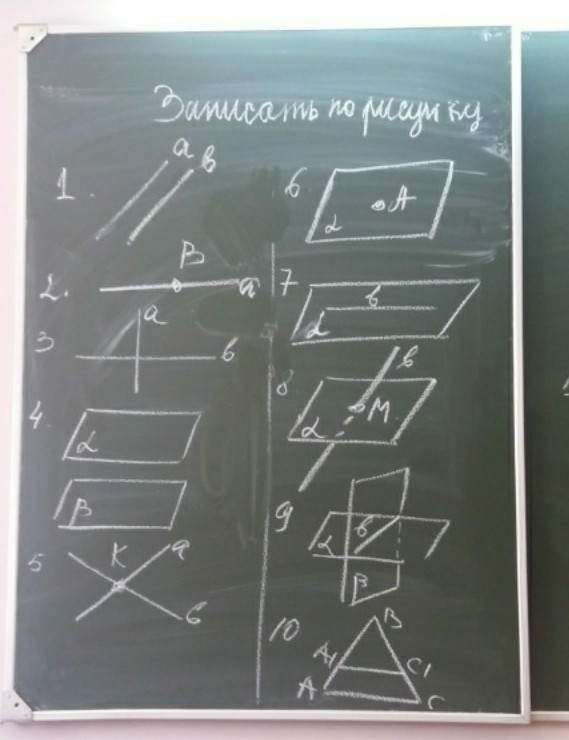 Записать по рисунку
1. a b
2. B a
3 a b
4. α
β
5 K a b
6 α A
7 α b
8 α M b
9 α b β
10 B
A1 C1
A C